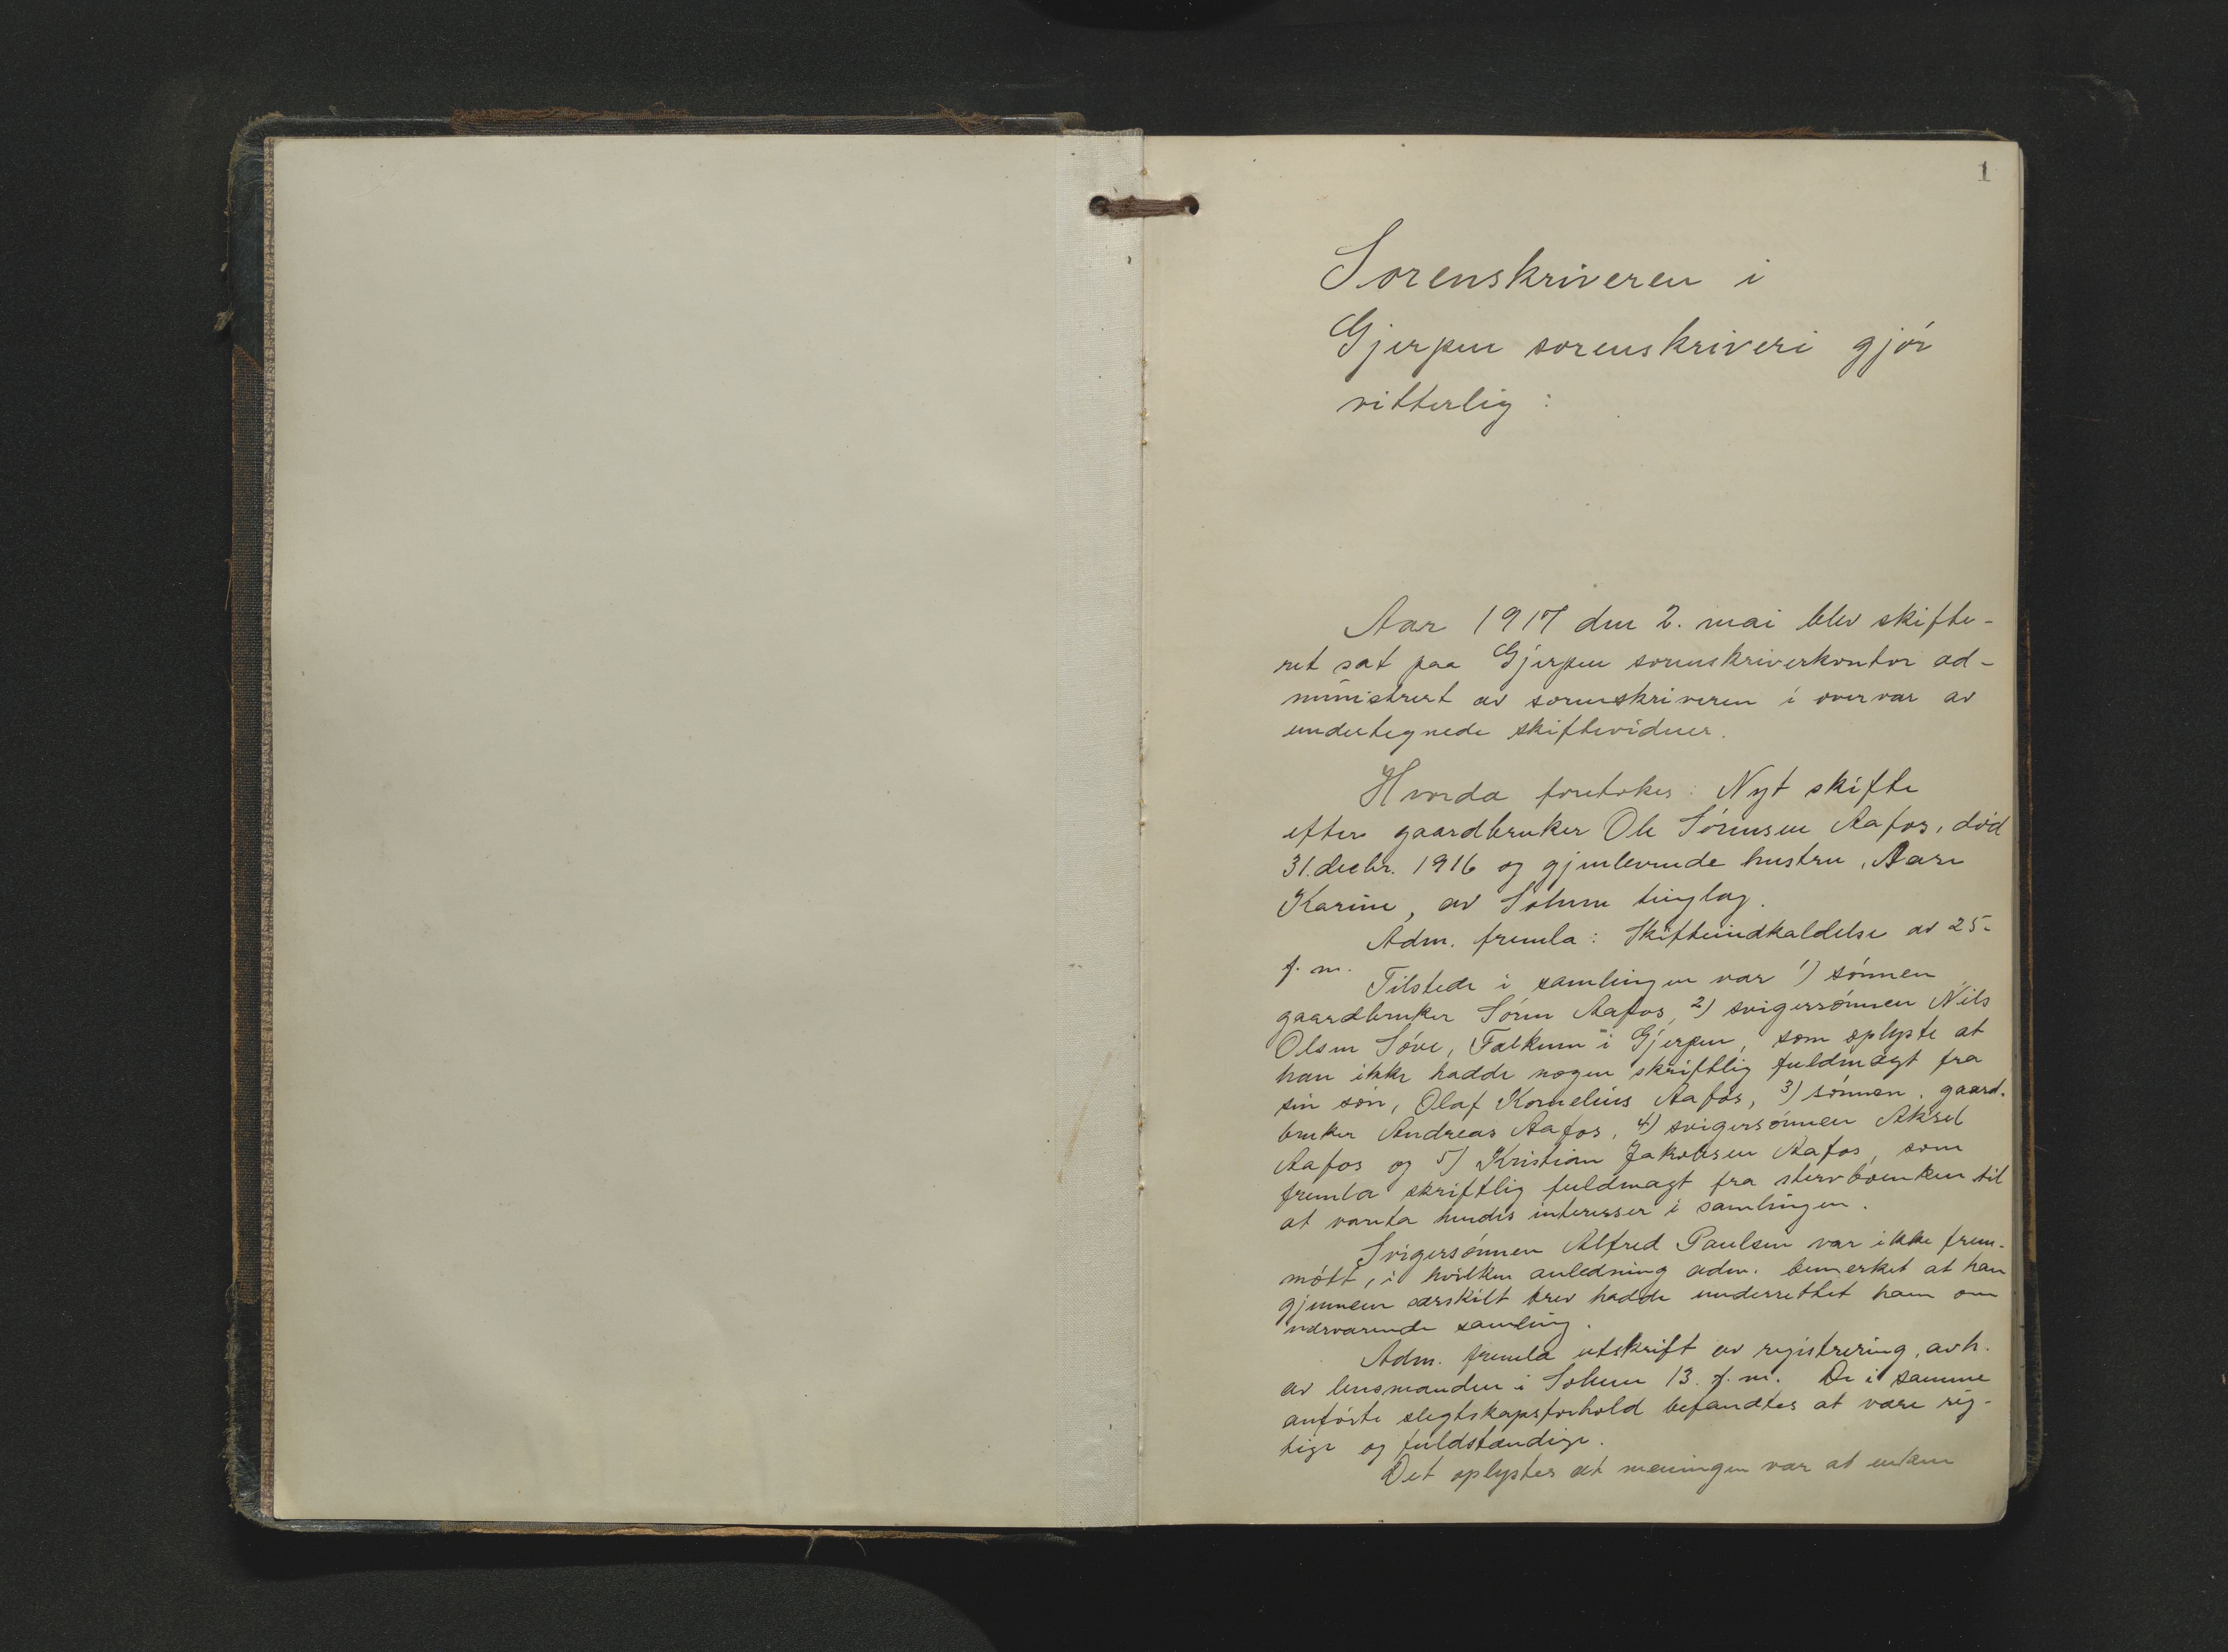 1
Sorenskriveren i
Gjerpen sorenskriveri gjór
vitterlig:
Aar 1917 den 2. mai blev skifte-
ret sat paa Gjerpen sorenskriverkontor ad-
ministrert av sorenskriveren i overvær av
undertegnede skiftevidner.
Hvorda foretokes: Nyt skifte
efter gaardbruker Ole Sórensen Aafos, död
31. decbr. 1916 og gjenlevende hustru, Aase
Karine, av Solum tinglag.
Adm. fremla: Skifteindkaldelse av 25.
f. m.
Tilstede i samlingen var 1) sónnen
gaardbruker Sóren Aafos, 2) svigersónnen Nils
Olsen Sóve, Falkum i Gjerpen, som oplyste at
han ikke hadde nogen skriftlig fuldmagt fra
sin són, Olaf Kornelius Aafos, 3) sónnen, gaard-
bruker Andreas Aafos, 4) svigersónnen Aksel
Aafos og 5) Kristian Jakobsen Aafos, som
fremla skriftlig fuldmagt fra stervboenken til
at vareta hendes interesser i samlingen.
Svigersónnen Alfred Paulsen var ikke frem-
mótt, i hvilken anledning adm. bemerket at han
gjennem særskilt brev hadde underrettet ham om
nærværende samling.
Adm. fremla utskrift av registrering, avh.
av lensmanden i Solum 13. f. m. De i samme
anfórte slegtskapsforhold befandtes at være rig-
tige og fuldstændige.
Det oplystes at meningen var at enken